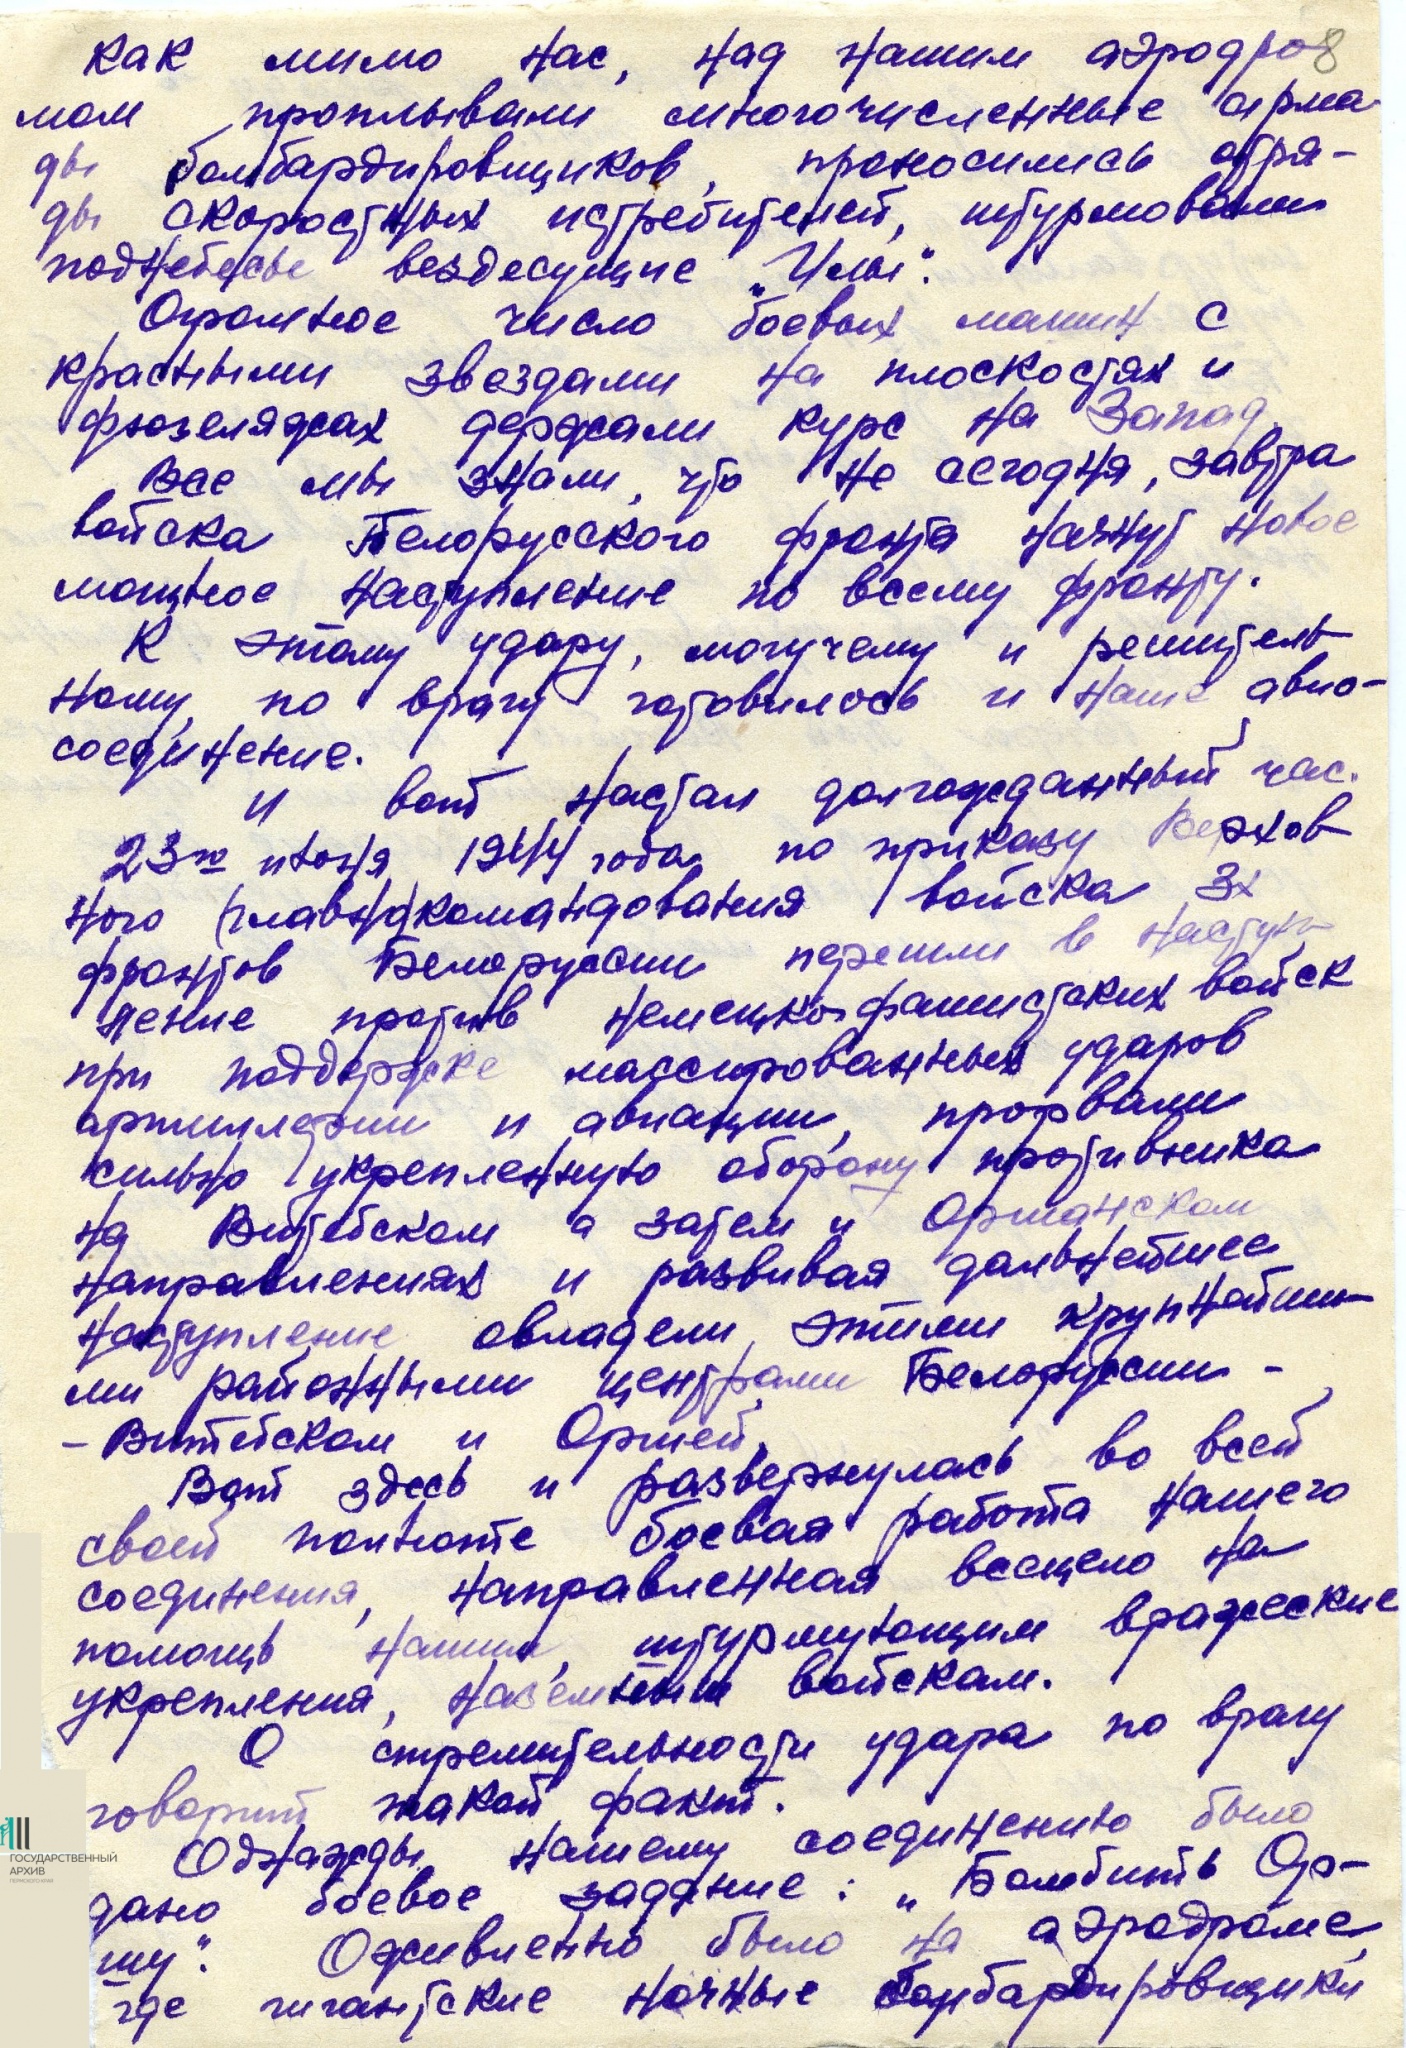 8
как мимо нас, над нашим аэродро-
мом проплывали многочисленные арма-
ды бомбардировщиков, проносились отря-
ды скоростных истребителей, штурмовали
поднебесье вездесущие „Илы".
Огромное число боевых машин с
красными звездами на плоскостях и
фюзеляжах держали курс на Запад.
Все мы знали, что не сегодня, завтра
войска Белорусского фронта начнут новое
мощное наступление по всему фронту.
К этому удару, могучему и решитель-
ному, по врагу готовилось и наше авио-
соединение.
И вот настал долгожданный час.
23го июня 1944 года по приказу Верхов-
ного Главнокомандования войска 3х
фронтов Белоруссии перешли в наступ-
ление против немецко-фашистских войск
при поддержке массированных ударов
артиллерии и авиации, прорвали
сильно укрепленную оборону противника
на Витебском а затем и Оршанском
направлениях и развивая дальнейшее
наступление овладели этими крупнейши-
ми районными центрами Белоруссии -
- Витебском и Оршей.
Вот здесь и развернулась во всей
своей полноте боевая работа нашего
соединения, направленная всецело на
помощь нашим, штурмующим вражеские
укрепления, наземным войскам.
О стремительности удара по врагу
говорит такой факт.
Однажды нашему соединению было
дано боевое задание: „Бомбить Ор-
шу". Оживленно было на аэродроме,
где гигантские ночные бомбардировщики
ГОСУДАРСТВЕННЫЙ
АРХИВ
ПЕРМСКОГО КРАЯ